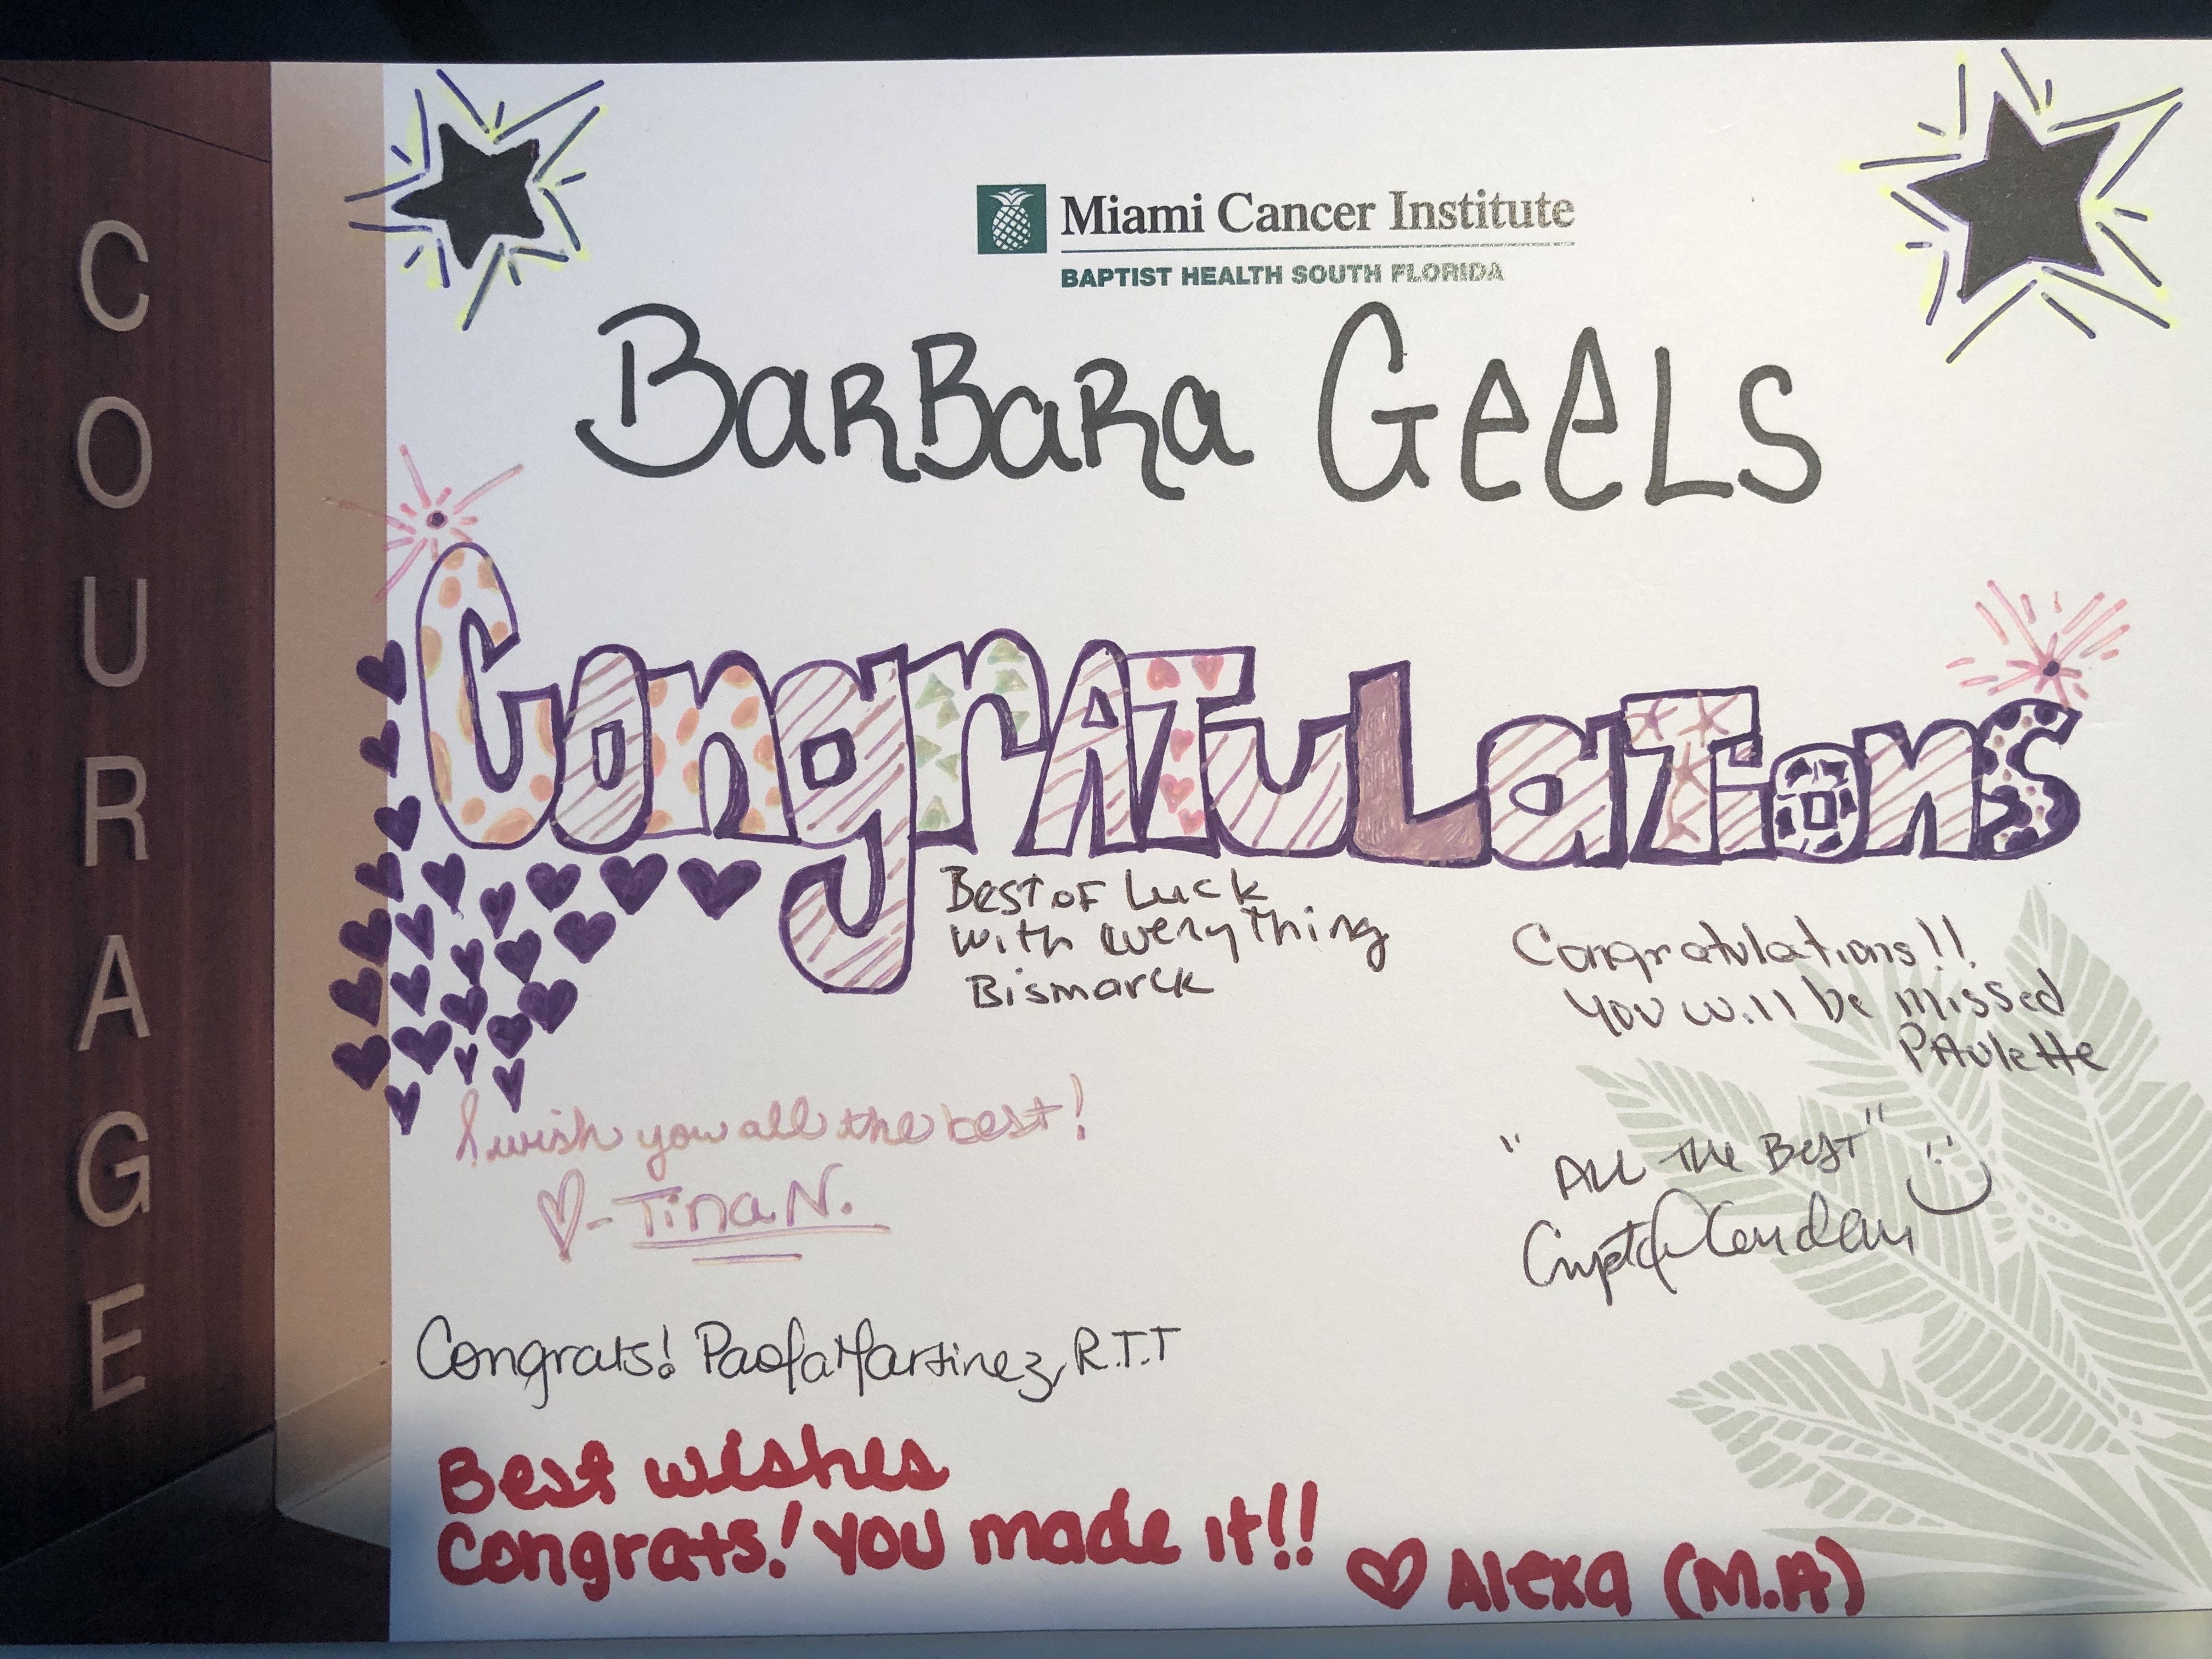 COURAGE
Miami Cancer Institute
BAPTIST HEALTH SOUTH FLORIDA
BarBaRa GeeLS
CongrATuLaTionS
Best of Luck
with everything
Bismarck
Congratulations!!
you will be missed
PAulette
I wish you all the best!
- Tina N.
"All the Best"
Congrats! Paola Martinez, R.T.T
Best wishes
Congrats! You made it!!
Alexa (M.A)